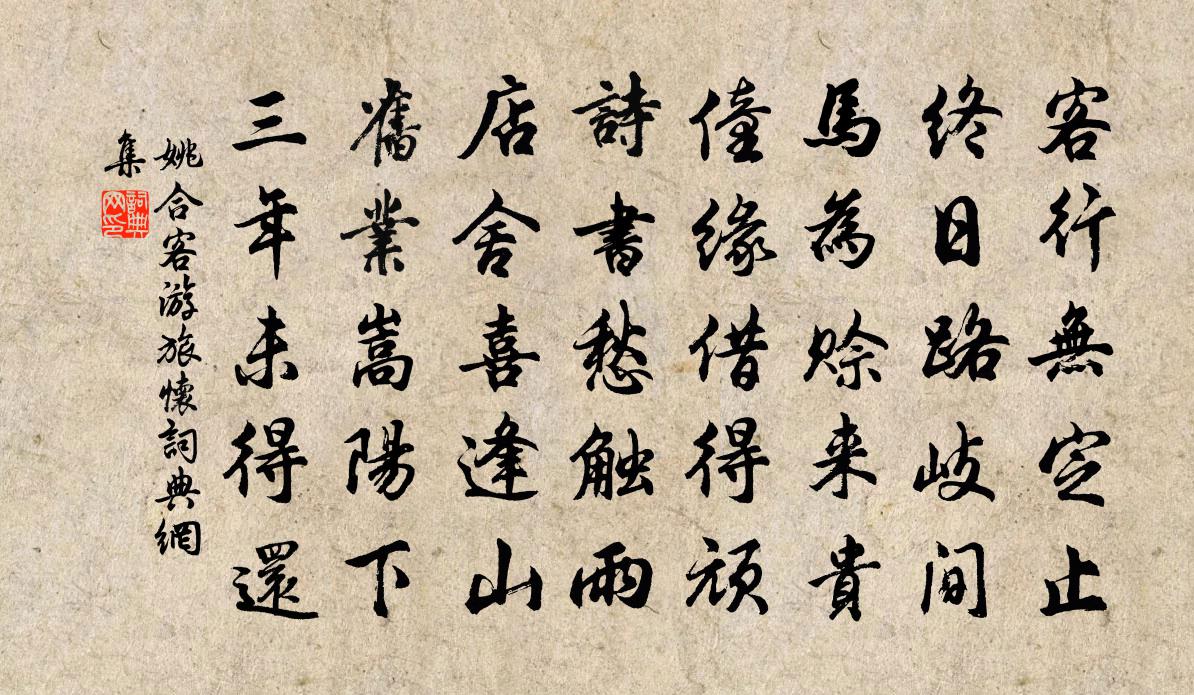 客行無定止
終日路歧間
馬為賒来貴
僮緣借得頑
詩書愁触雨
店舍喜逢山
舊業嵩陽下
三年未得還
姚合客游旅懷詞典網
集
詞典
网印